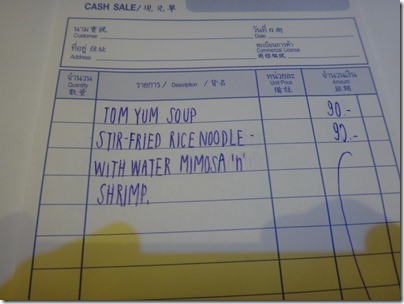 CASH SALE/ 現 兌 單
นาม 寶號
Customer
วันที่ 日期
Date
ที่อยู่ 住址
Address
ทะเบียนการค้า
Commercial License
商標編號
จำนวน
Quantity
數量
รายการ / Description / 貨名
หน่วยละ
Unit Price
จำนวนเงิน
Amount
TOM YUM SOUP 90.-
STIR-FRIED RICE NOODLE - 90.-
WITH WATER MIMOSA 'n'
SHRIMP.